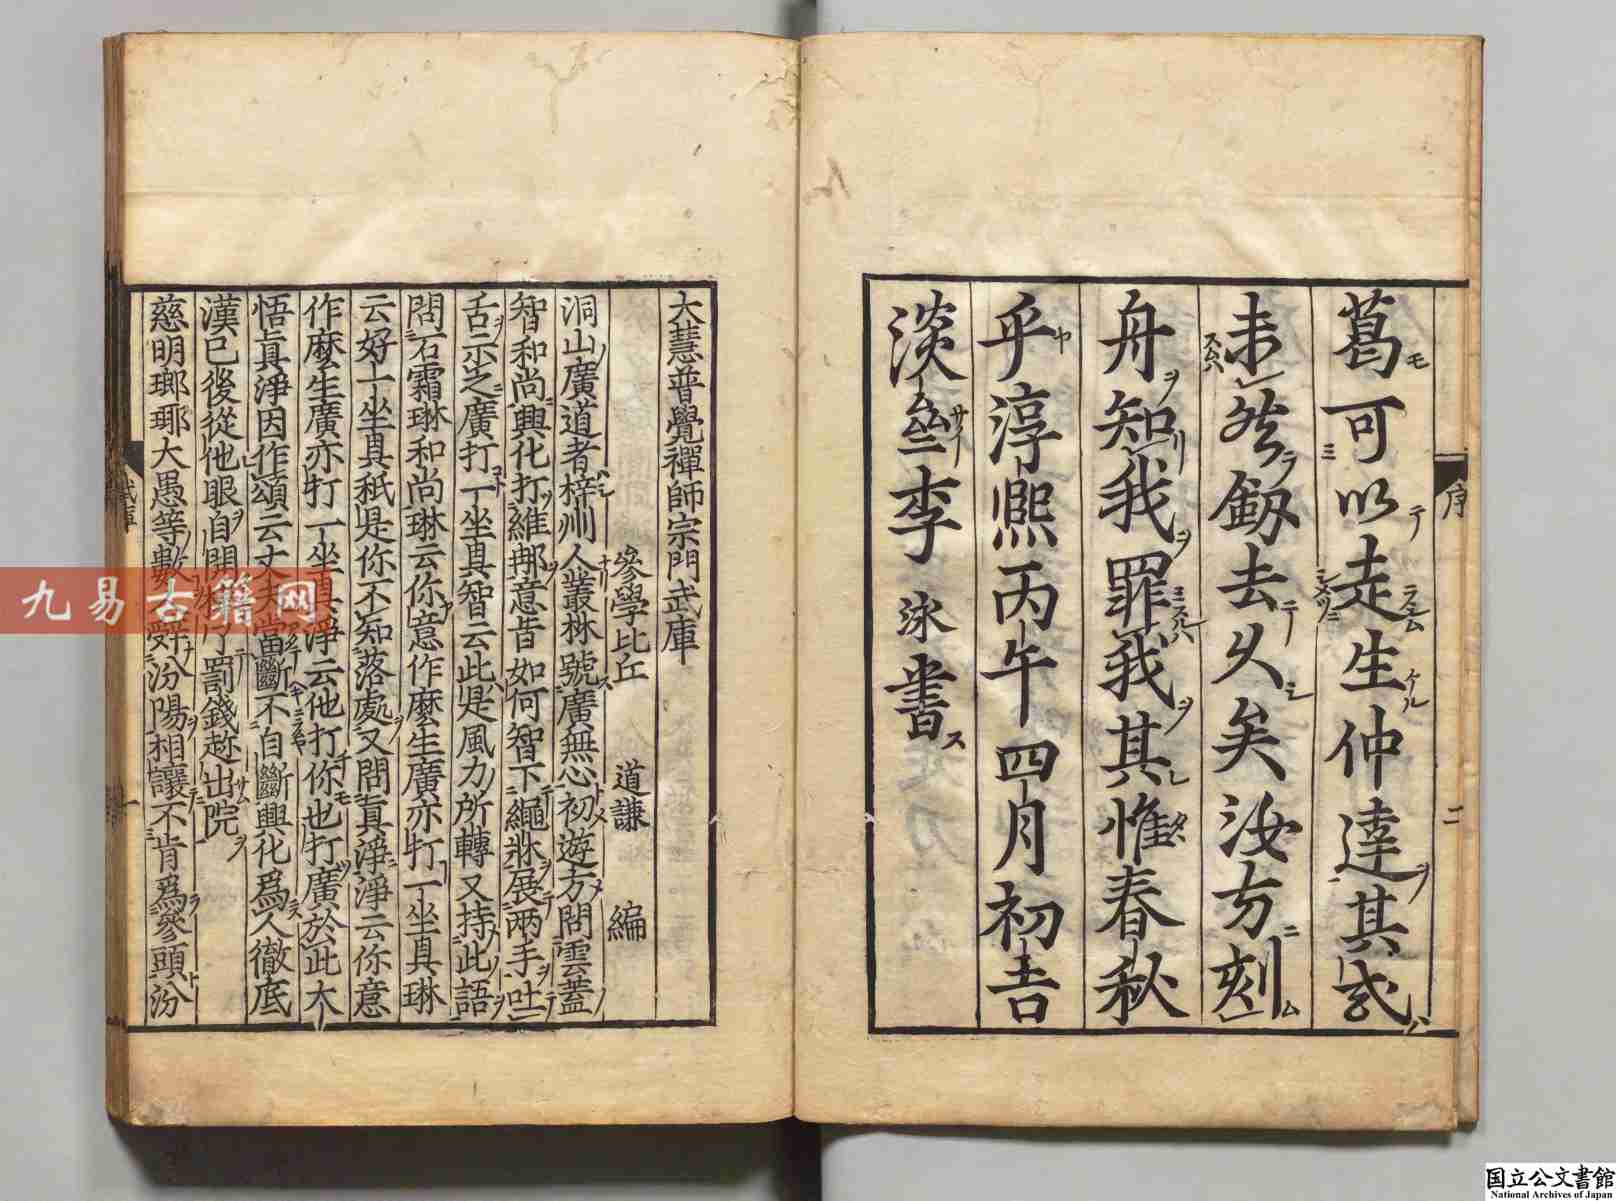 葛可以走生仲達其或
未然劔去久矣汝方刻
舟知我罪我其惟春秋
乎淳熈丙午四月初吉
淡齋李泳書
序
二
大慧普覺禪師宗門武庫
參學比丘 道謙 編
洞山廣道者梓州人叢林號廣無心初遊方問雲蓋
智和尚興化打維那意旨如何智下繩牀展兩手吐
舌示之廣打一坐具智云此是風力所轉又持此語
問石霜琳和尚琳云你意作麼生廣亦打一坐具琳
云好一坐具秖是你不知落處又問真淨淨云你意
作麼生廣亦打一坐具淨云他打你也打廣於此大
悟真淨因作頌云丈夫當斷不自斷興化爲人徹底
漢已後從他眼自開棒了罰錢趂出院
慈明瑯琊大愚等數人辭汾陽相讓不肯爲參頭汾
武庫
一
九易古籍网
国立公文書館
National Archives of Japan